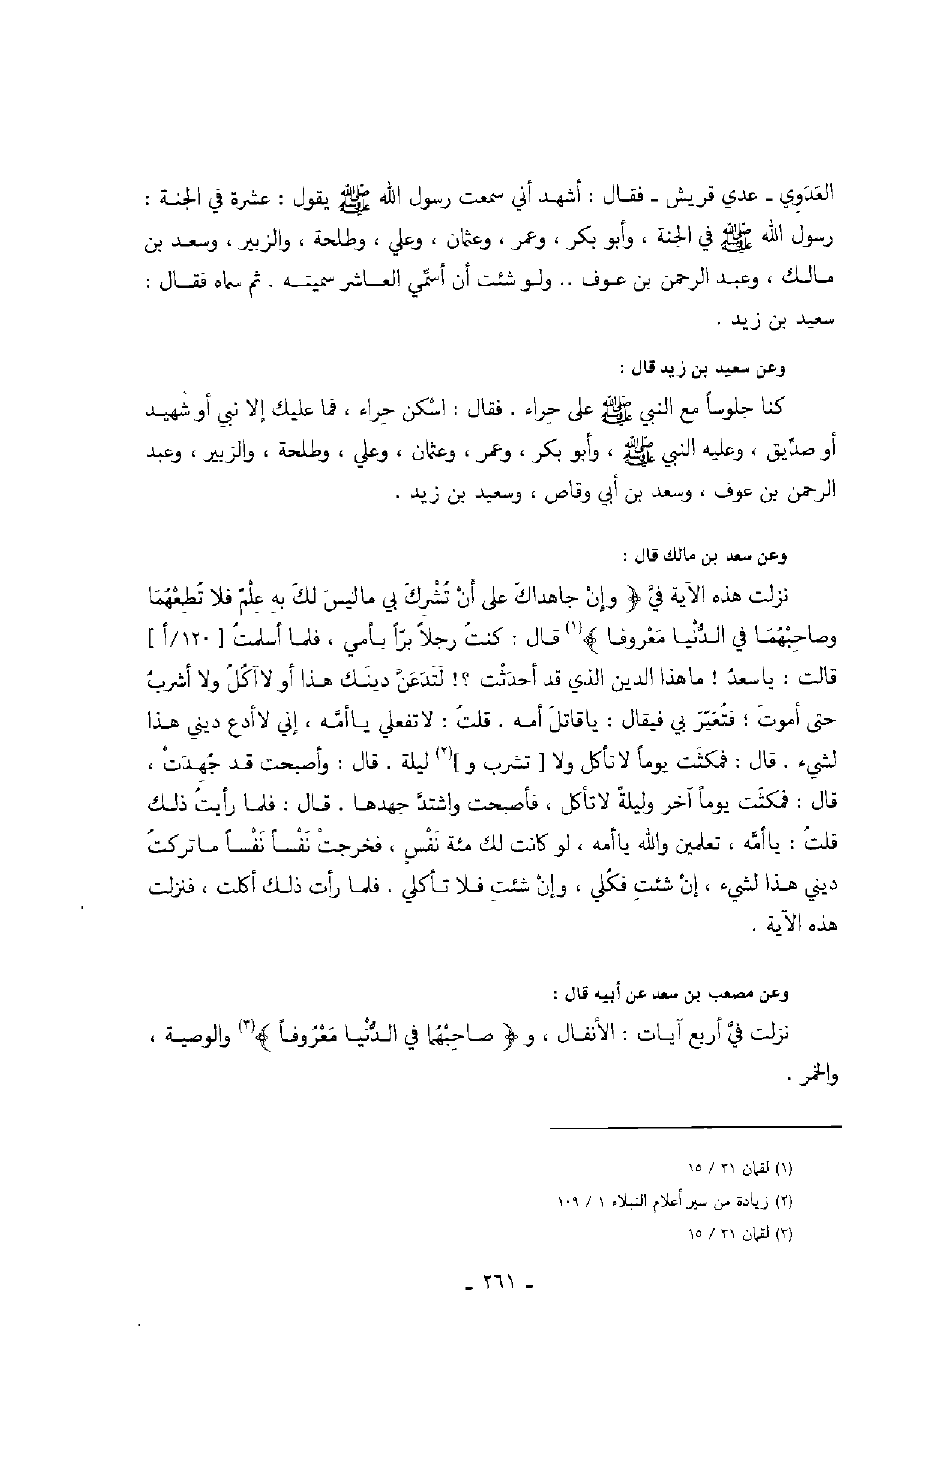 العَدَوِي - عدي قريش - فقال : أشهد أني سمعت رسول الله ﷺ يقول : عشرة في الجنة :
رسول الله ﷺ في الجنة ، وأبو بكر ، وعمر ، وعثمان ، وعلي ، وطلحة ، والزبير ، وسعد بن
مالك ، وعبد الرحمن بن عوف .. ولو شئت أن أسمّي العاشر سميته . ثم سماه فقال :
سعيد بن زيد .
وعن سعيد بن زيد قال :
كنا جلوساً مع النبي ﷺ على حِراء . فقال : اسْكن حِراء ، فما عليك إلا نبي أو شهيد
أو صدِّيق ، وعليه النبي ﷺ ، وأبو بكر ، وعمر ، وعثمان ، وعلي ، وطلحة ، والزبير ، وعبد
الرحمن بن عوف ، وسعد بن أبي وقاص ، وسعيد بن زيد .
وعن سعد بن مالك قال :
نزلت هذه الآية فيَّ ﴿ وإنْ جاهداكَ على أنْ تُشْرِكَ بي ماليسَ لكَ بهِ علْمٌ فلا تُطِعْهُمَا
وصاحِبْهُمَا في الدُّنْيا مَعْروفا ﴾(١) قال : كنتُ رجلاً برّاً بأمي ، فلما أسلمتُ [ ١٢٠/أ ]
قالت : ياسعدُ ! ماهذا الدين الذي قد أحدَثْت ؟! لتَدَعَنَّ دينَك هذا أو لاآكُلُ ولا أشربُ
حتى أموتَ ؛ فتُعَيَّرَ بي فيقال : ياقاتلَ أمه . قلتُ : لاتفعلي ياأمَّه ، إني لاأدع ديني هذا
لشيء . قال : فمكثَت يوماً لاتأكل ولا [ تشرب و ](٢) ليلة . قال : وأصبحت قد جُهِدَتْ ،
قال : فمكثَت يوماً آخر وليلةً لاتأكل ، فأصبحت واشتدَّ جهدها . قال : فلما رأيتُ ذلك
قلتُ : ياأمَّه ، تعلمين والله ياأمه ، لو كانت لك مئة نَفْسٍ ، فخرجتْ نَفْساً نَفْساً ماتركتُ
ديني هذا لشيء ، إنْ شئتِ فكُلي ، وإنْ شئتِ فلا تأكلي . فلما رأت ذلك أكلت ، فنزلت
هذه الآية .
وعن مصعب بن سعد عن أبيه قال :
نزلت فيَّ أربع آيات : الأنفال ، و ﴿ صاحِبْهُما في الدُّنْيا مَعْرُوفاً ﴾(٣) والوصية ،
والخمر .
(١) لقمان ٣١ / ١٥
(٢) زيادة من سير أعلام النبلاء ١ / ١٠٩
(٣) لقمان ٣١ / ١٥
- ٢٦١ -